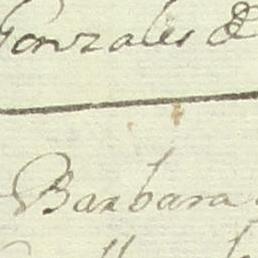 Gonzales de
Barbara